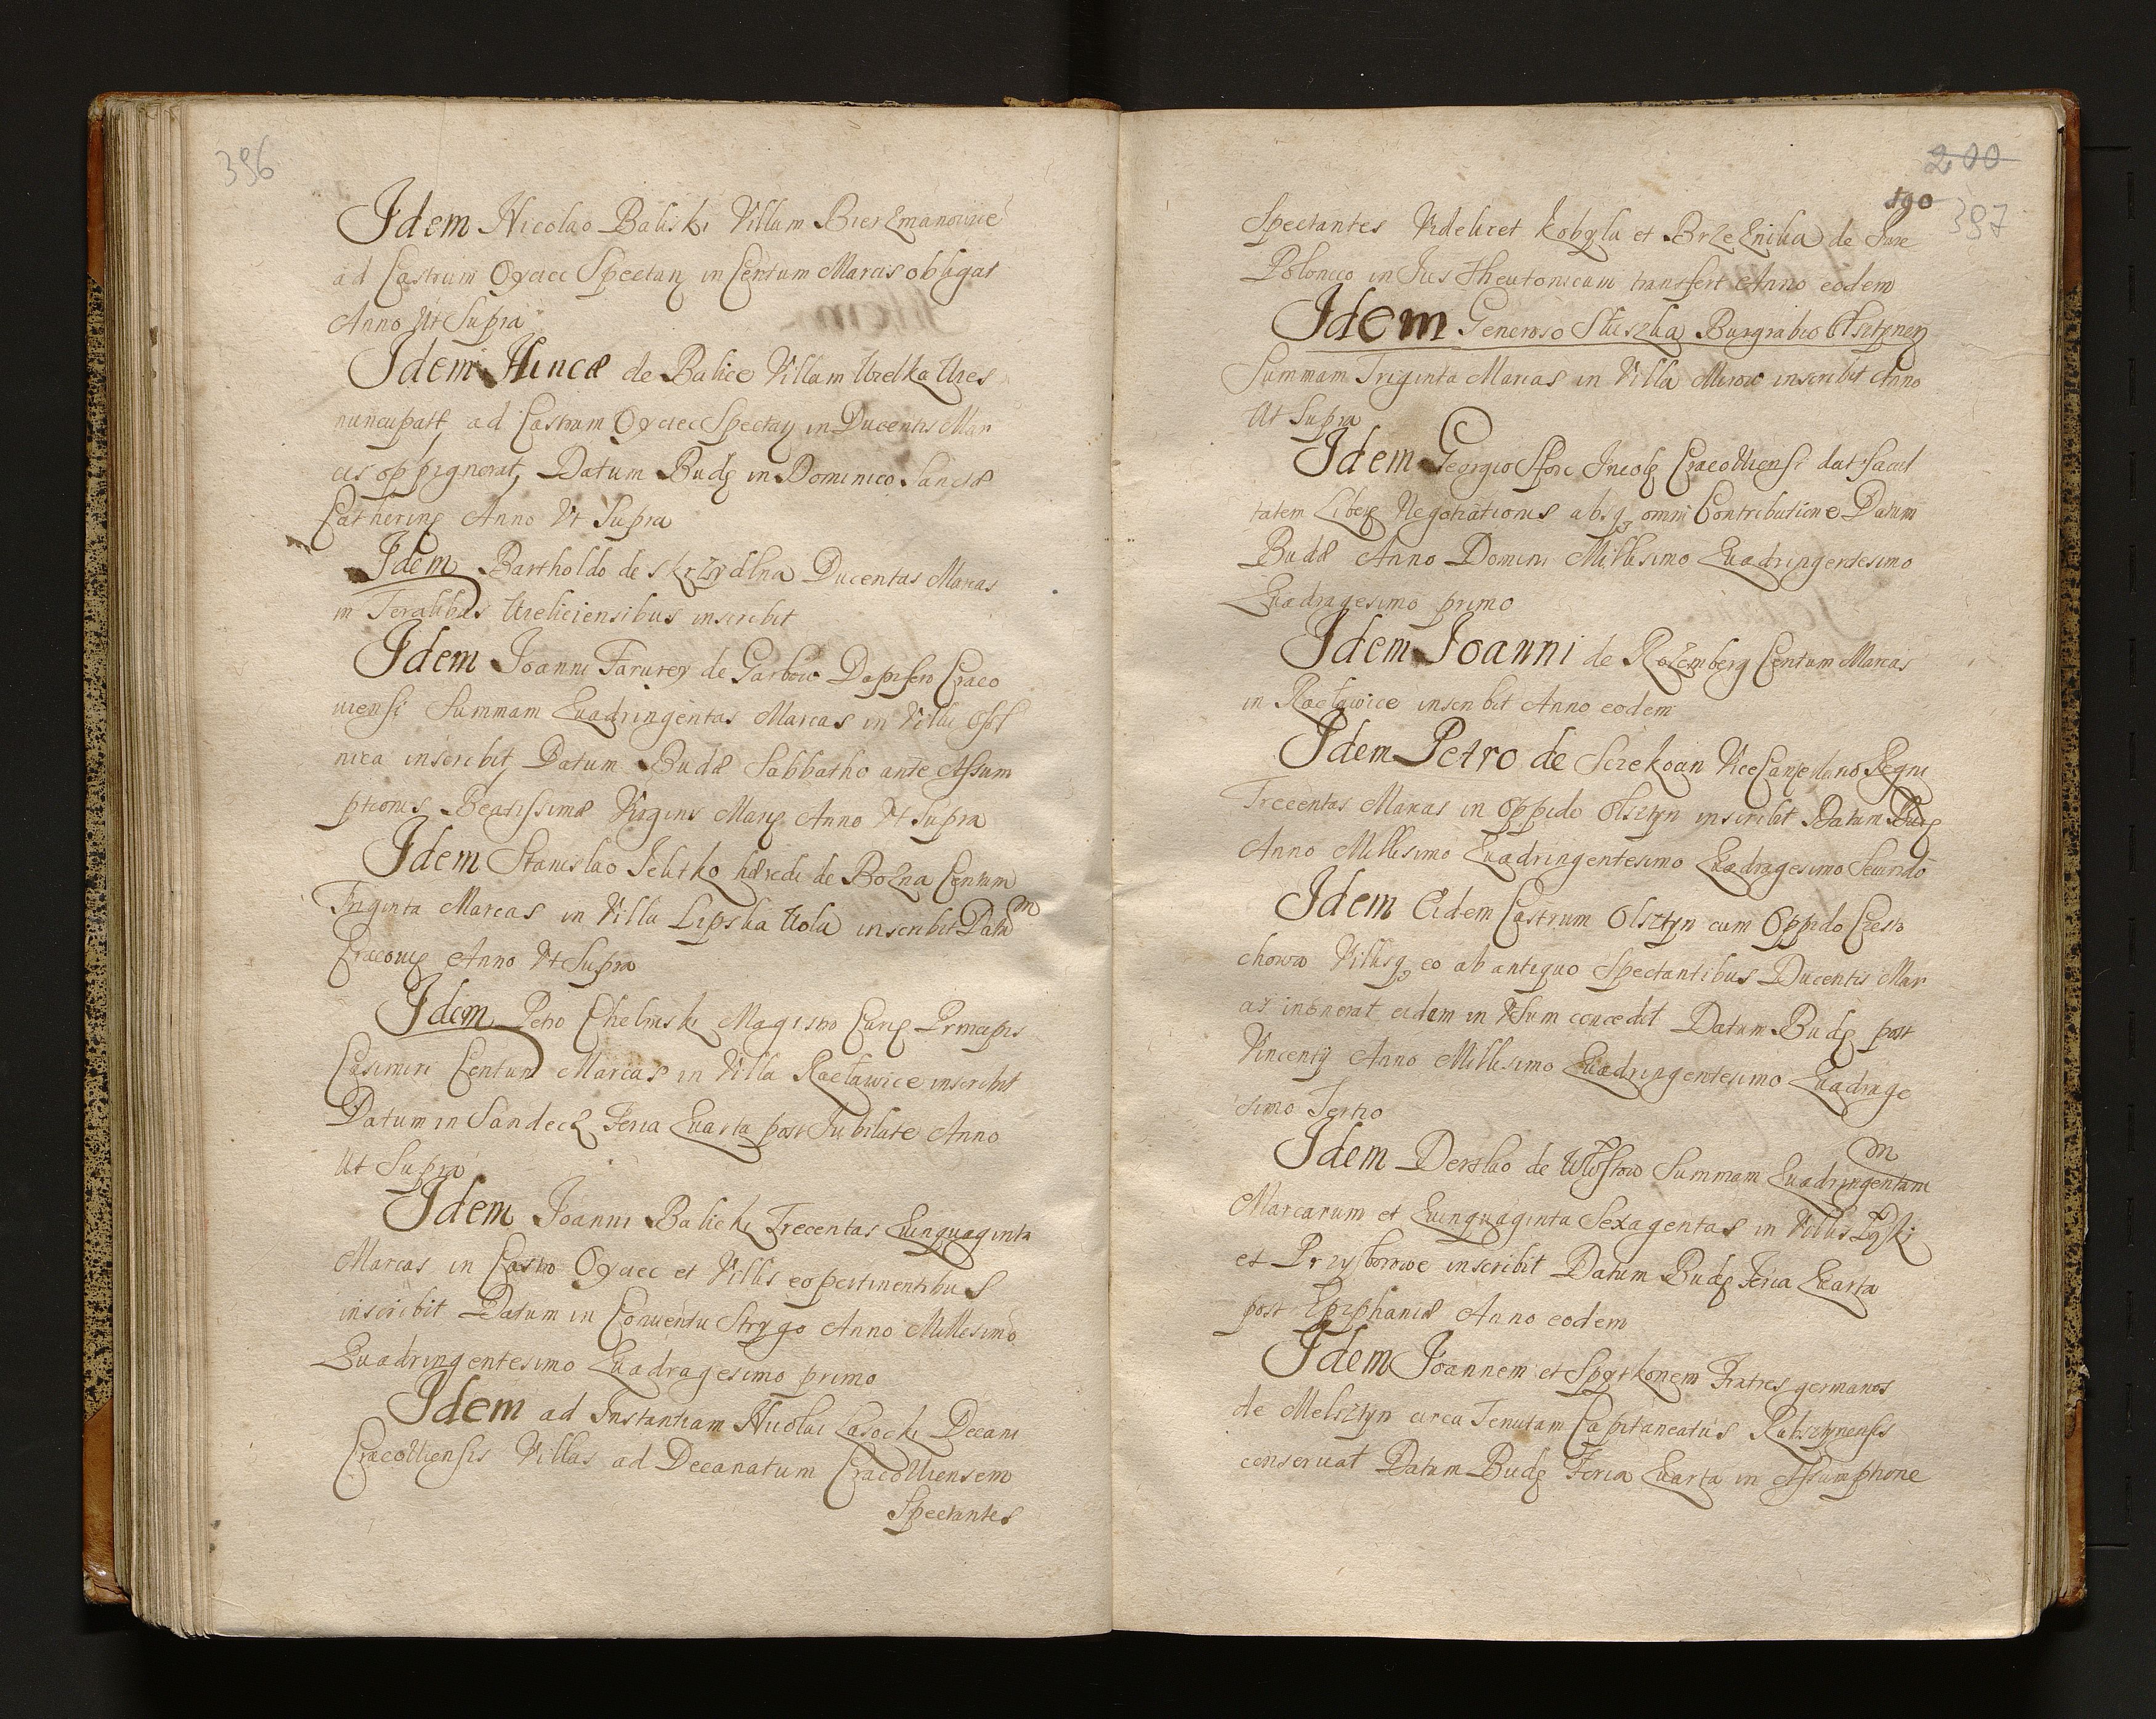 396
Idem Nicolao Baliski Villam Bierzmanowice
ad Castrum Oyciec Spectan in Centum Marcis obligat
Anno Ut Supra
Idem Hincæ de Balice Villam Uielka Uies
nuncupatt, ad Castrum Oyciec Spectan in Ducentis Mar
cis oppignorat, Datum Budę in Dominico Sanctæ
Catherinę Anno Vt Supra
Idem Bartholdo de Skrzydlna Ducentas Marcas
in Ueliciensibus inscribit
Idem Joanni Farurey de Garbow Dapifero Craco
uiensi Summam Quadringentas Marcas in Villa Ossl
nica inscribit, Datum Budæ Sabbatho ante Assum
ptionis Beatissimæ Virginis Marię Anno Vt Supra
Idem Stanislao Jelitko hærede de Bozna Centum
Triginta Marcas in Villa Lipska Uola inscribit Datum
Cracouię Anno Vt Supra
Idem Petro Chelmski Magistro Curię Principis
Casimiri Centum Marcas in Villa Racławice inscribit
Datum in Sandecz Feria Quarta post Jubilate Anno
Ut Supra
Idem Joanni Balicki Trecentas Quinquaginta
Marcas in Castro Oyciec et Villis eo pertinentibus
inscribit Datum in Conuentu Strygo Anno Millesimo
Quadringentesimo Quadragesimo primo
Idem ad Instantiam Nicolai Lasocki Decani
Cracouiensis Villas ad Decanatum Cracouiensem
Spectantes
200
190
397
Spectantes Videlicet Kobyla et Brzeznica de Jure
Polonico in Jus Theutonicum transfert Anno eodem
Idem Generoso Sluszka Burgrabio Olsztynen
Summam Triginta Marcas in Villa Mirow inscribit Anno
Ut Supra
Idem Georgio Sforc Incolę Cracouiensi dat facul
tatem Liberę Negotiationis absq omni Contributione Datum
Budæ Anno Domini Millesimo Quadringentesimo
Quadragesimo primo
Idem Joanni de Rozemberg Centum Marcas
in Racławice inscribit Anno eodem
Idem Petro de Sczekocin ViceCancellario Regni
Trecentas Marcas in Oppido Olsztyn inscribit Datum Budę
Anno Millesimo Quadringentesimo Quadragesimo Secundo
Idem Eidem Castrum Olsztyn cum Oppido Czesto
chowo Villisq eo ab antiquo Spectantibus Ducentis Mar
as inonerat eidem in Usum concedit Datum Budę post
Vincentij Anno Millesimo Quadringentesimo Quadrage
simo Tertio
Idem Derslao de Włostow Summam Quadringentam
Marcarum et Quinquaginta Sexagentas in Villis
et Przyborowe inscribit Datum Budę Feria Quarta
post Epiphaniæ Anno eodem
Idem Joannem et Spytkonem Fratres germanos
de Melsztyn circa Tenutam Capitaneatus Rabsztynensis
conseruat Datum Budę Feria Quarta in Assumptione